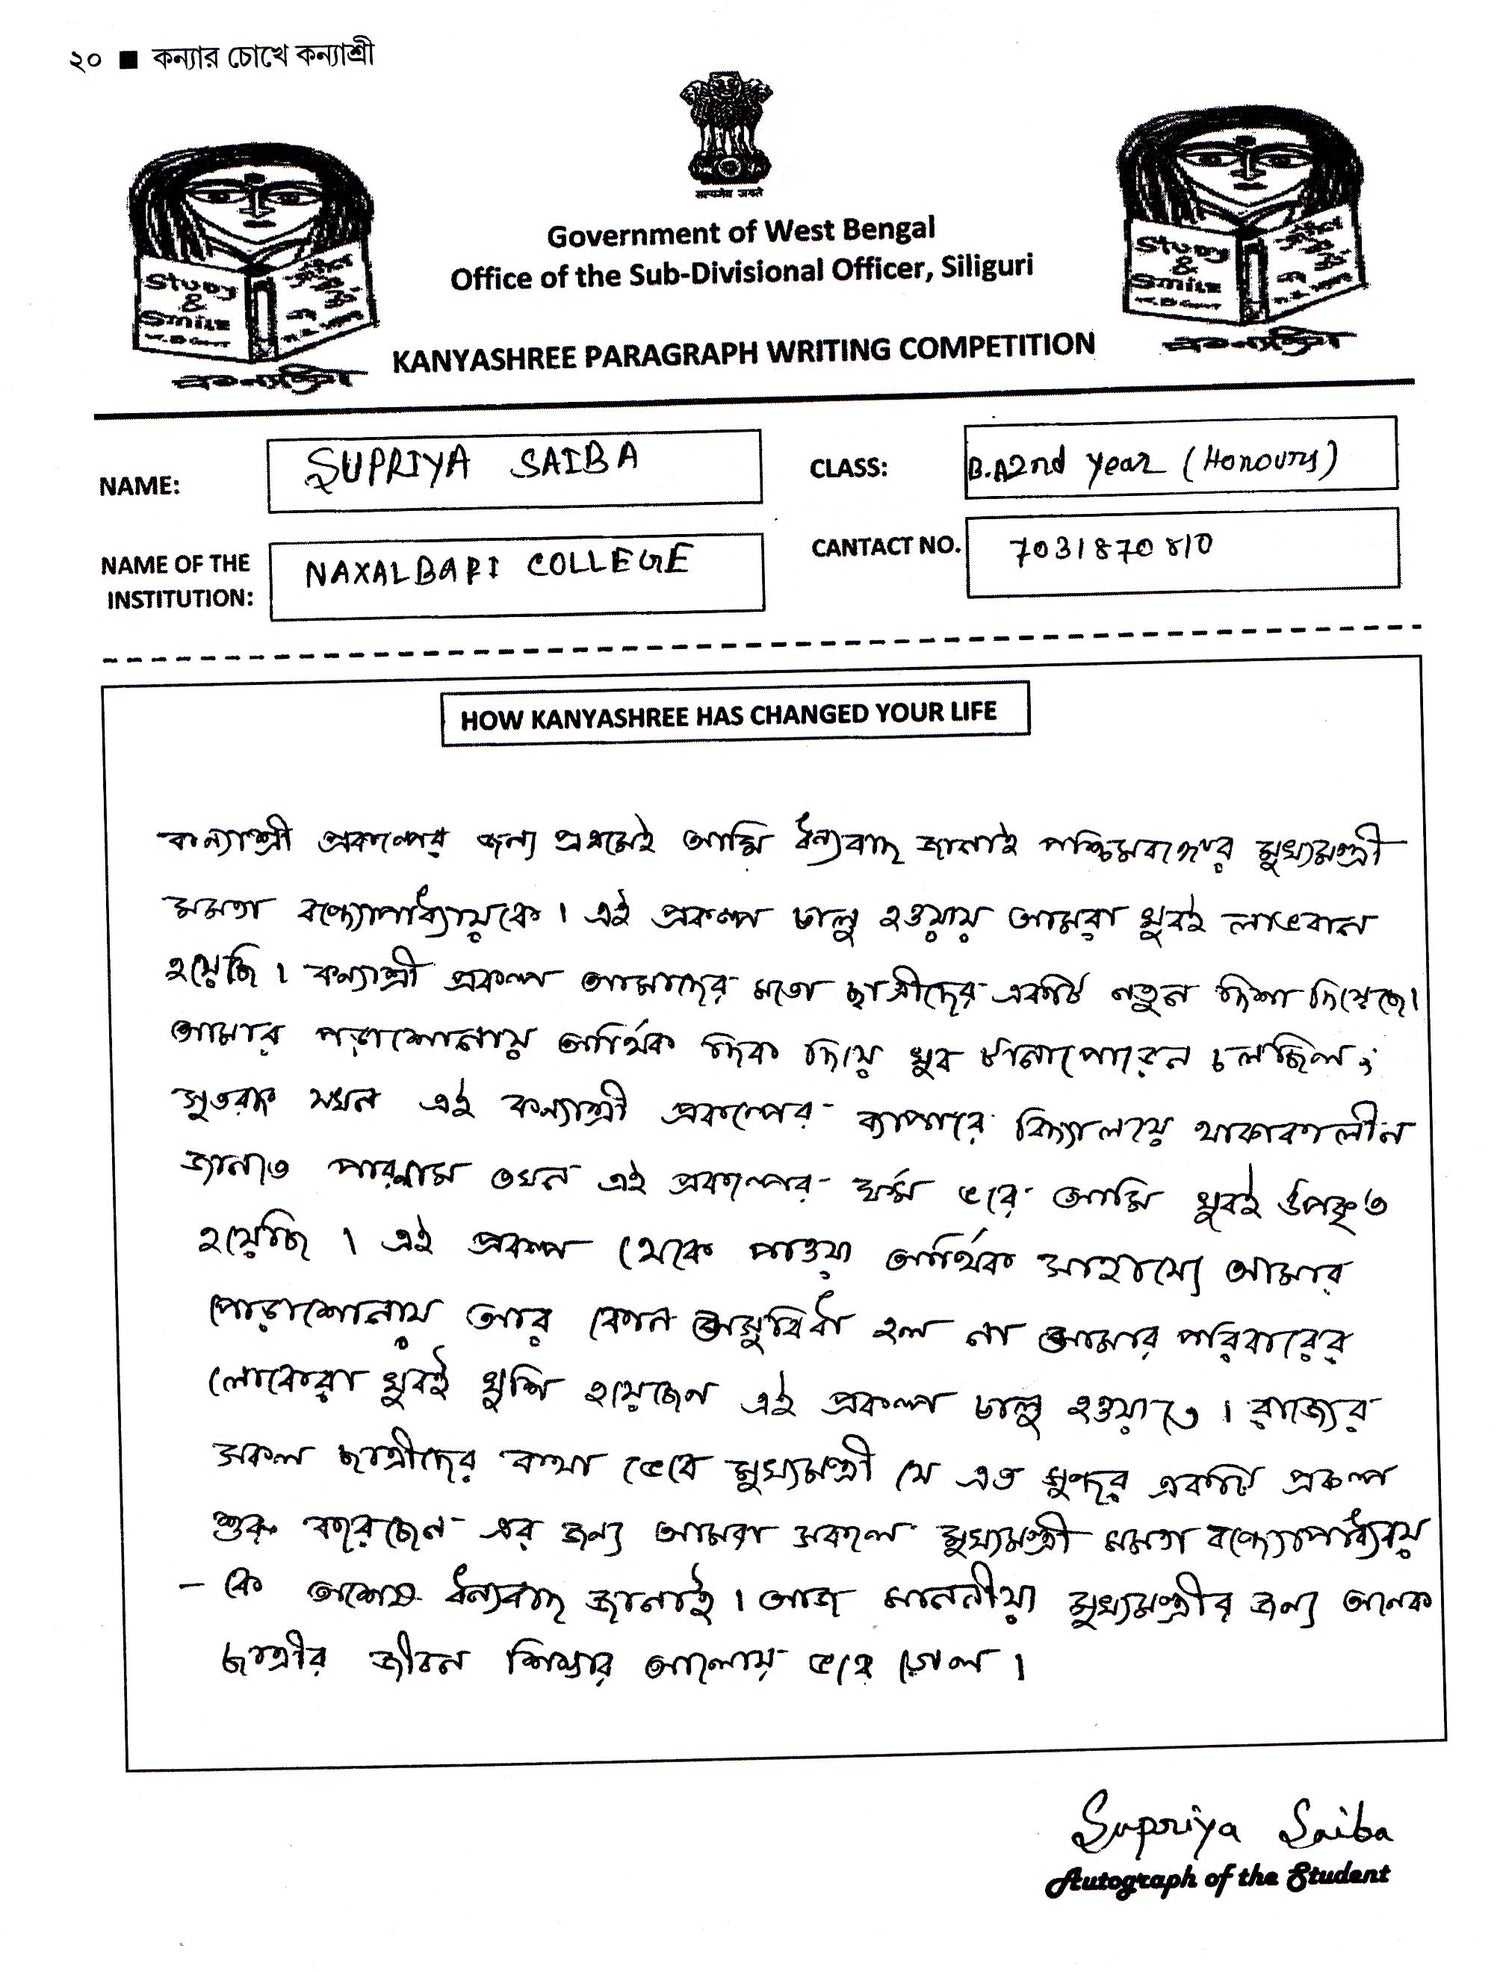 ২০ ■ কন্যার চোখে কন্যাশ্রী
सत्यमेव जयते
Government of West Bengal
Office of the Sub-Divisional Officer, Siliguri
KANYASHREE PARAGRAPH WRITING COMPETITION
Study
&
Smile
কন্যাশ্রী
Study
&
Smile
কন্যাশ্রী
NAME: SUPRIYA SAIBA
CLASS: B.A 2nd year (Honours)
NAME OF THE INSTITUTION: NAXALBARI COLLEGE
CANTACT NO. 7031870810
HOW KANYASHREE HAS CHANGED YOUR LIFE
কন্যাশ্রী প্রকল্পের জন্য প্রথমেই আমি ধন্যবাদ জানাই পশ্চিমবঙ্গের মুখ্যমন্ত্রী
মমতা বন্দ্যোপাধ্যায়কে। এই প্রকল্প চালু হওয়ায় আমরা খুবই লাভবান
হয়েছি। কন্যাশ্রী প্রকল্প আমাদের মতো ছাত্রীদের একটি নতুন দিশা দিয়েছে।
আমার পড়াশোনায় আর্থিক দিক দিয়ে খুব টানাপোরেন চলছিল,
সুতরাং যখন এই কন্যাশ্রী প্রকল্পের ব্যাপারে বিদ্যালয়ে থাকাকালীন
জানতে পারলাম তখন এই প্রকল্পের ফর্ম ভরে আমি খুবই উপকৃত
হয়েছি। এই প্রকল্প থেকে পাওয়া আর্থিক সাহায্যে আমার
পোড়াশোনায় আর কোন অসুবিধা হল না আমার পরিবারের
লোকেরা খুবই খুশি হয়েছেন এই প্রকল্প চালু হওয়াতে। রাজ্যের
সকল ছাত্রীদের কথা ভেবে মুখ্যমন্ত্রী যে এত সুন্দর একটি প্রকল্প
শুরু করেছেন এর জন্য আমরা সকলে মুখ্যমন্ত্রী মমতা বন্দ্যোপাধ্যায়
- কে অশেষ ধন্যবাদ জানাই। আজ মাননীয়া মুখ্যমন্ত্রীর জন্য অনেক
ছাত্রীর জীবন শিক্ষার আলোয় ভরে গেল।
Supriya Saiba
Autograph of the Student